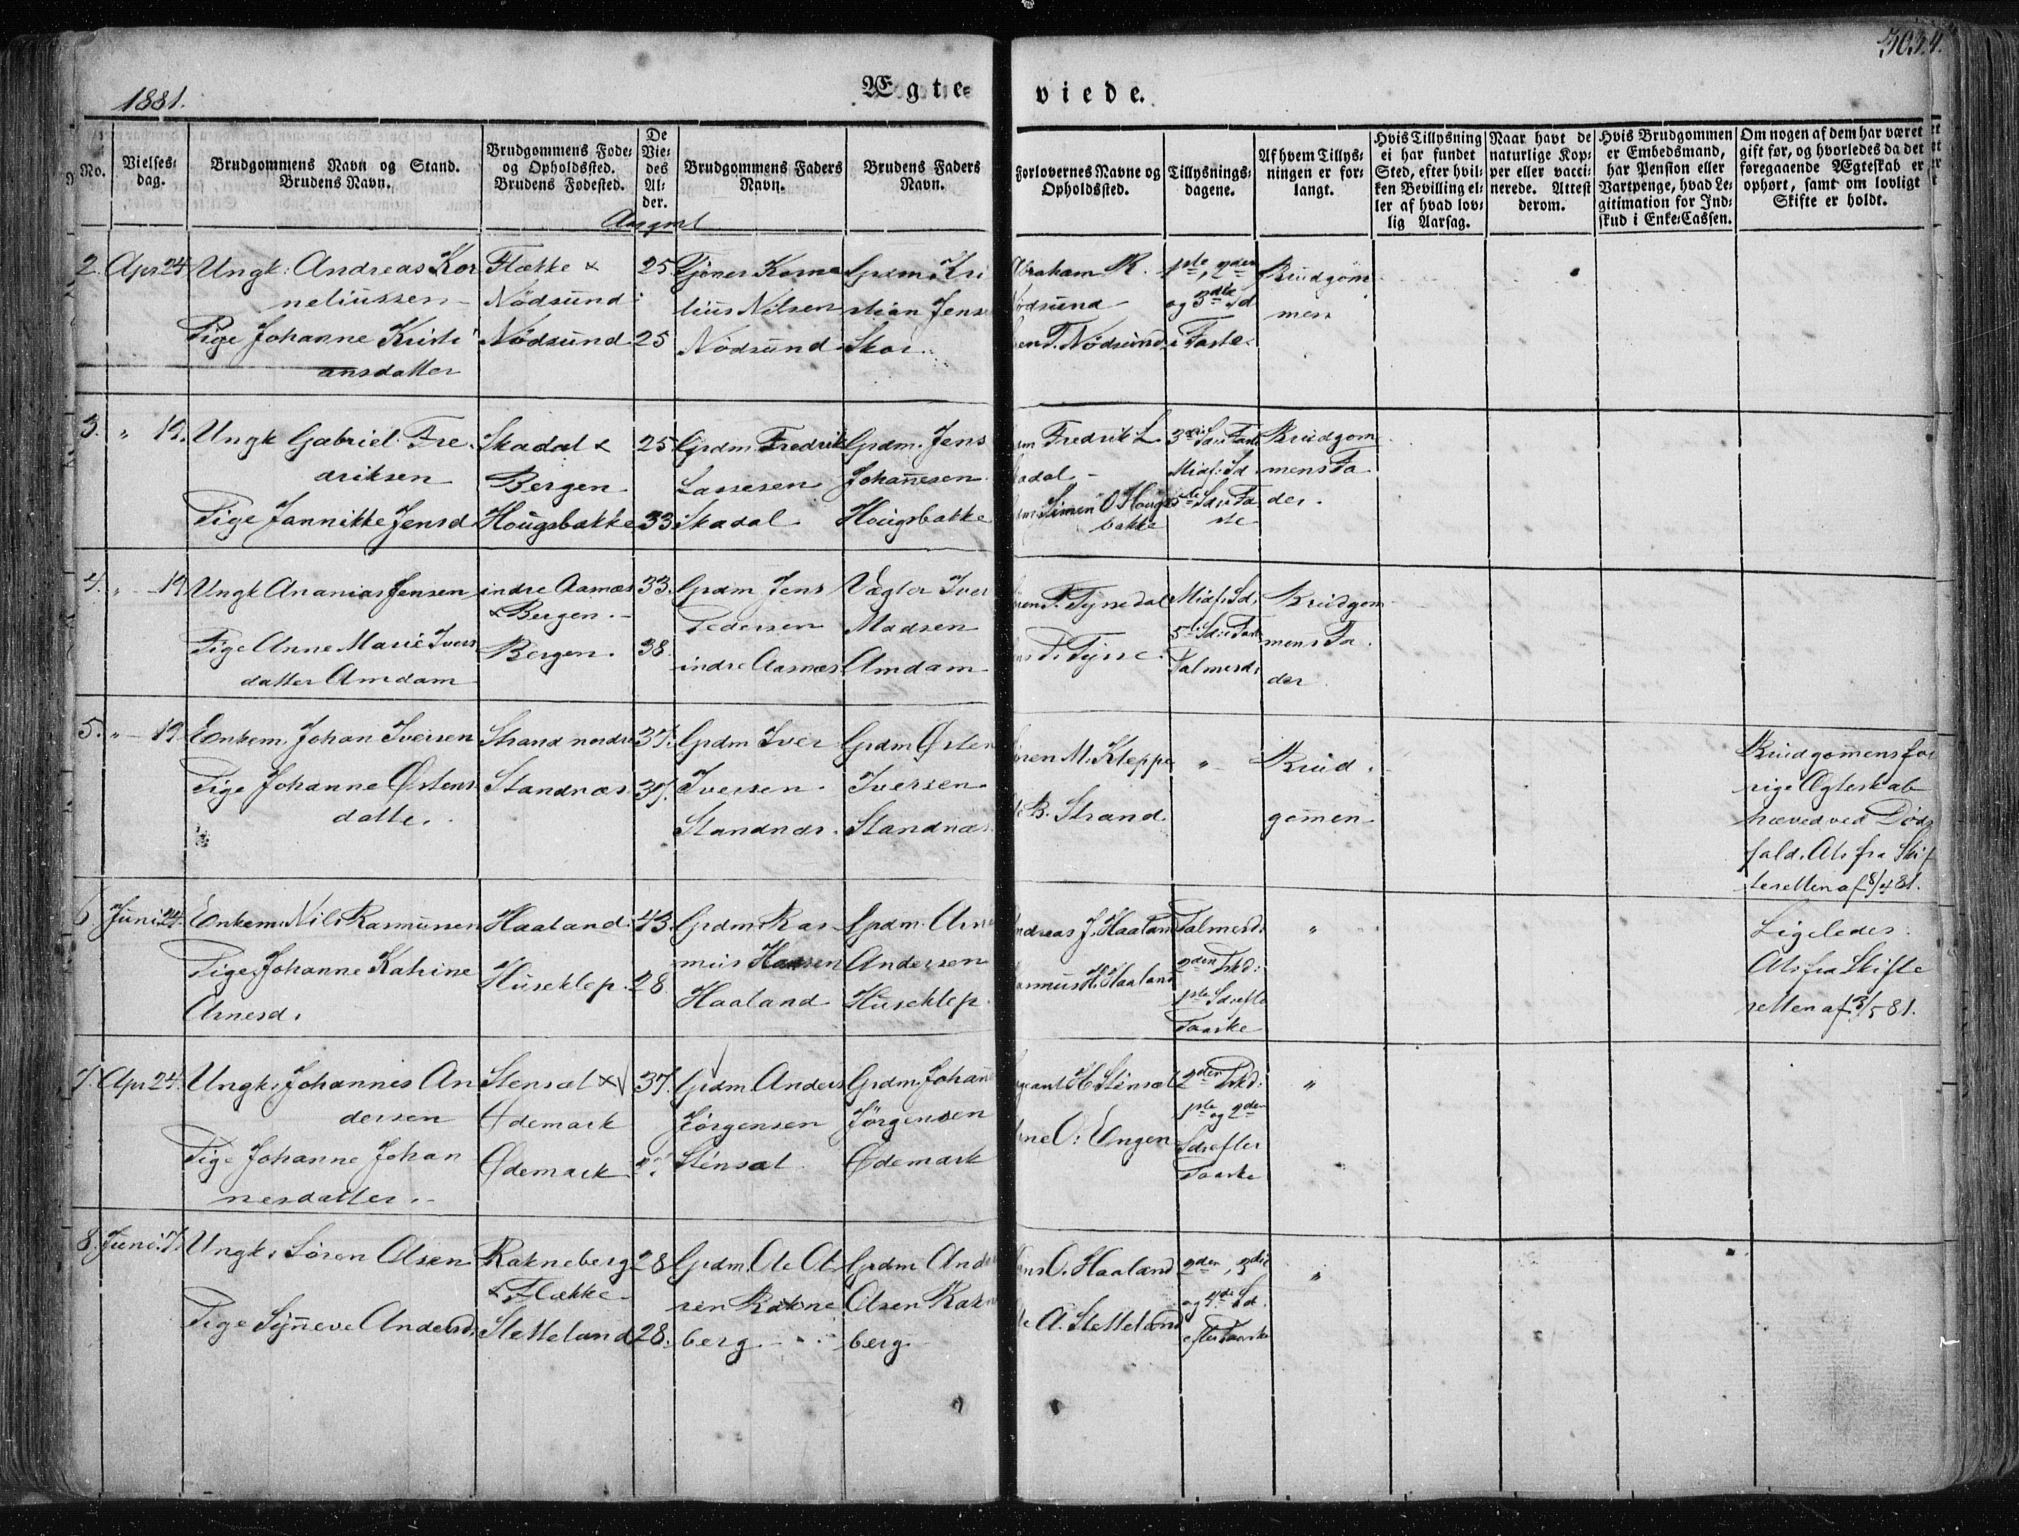 1881.
Ægte-
viede.
No.
Vielses-
dag.
Brudgommens Navn og Stand.
Brudens Navn.
Brudgommens Føde-
og Opholdssted.
Brudens Fødested.
De
Vie-
des
Al-
der.
Brudgommens Faders
Navn.
Brudens Faders
Navn.
Forlovernes Navne og
Opholdssted.
Tillysnings-
dagene.
Af hvem Tillys-
ningen er for-
langt.
Hvis Tillysning
ei har fundet
Sted, efter hvil-
ken Bevilling el-
ler af hvad lov-
lig Aarsag.
Naar havt de
naturlige Kop-
per eller vacci-
nerede. Attest
derom.
Hvis Brudgommen
er Embedsmand,
har Pension eller
Vartpenge, hvad Le-
gitimation for Ind-
skud i Enke-Cassen.
Om nogen af dem har været
gift før, og hvorledes da det
foregaaende Ægteskab er
ophørt, samt om lovligt
Skifte er holdt.
2. Apr 24. Ungk: Andreas Kor
neliussen
Pige Johanne Kristi
ansdatter
Flække &
Nødsund
Nødsund
25
25
Korne
lius Nilsen
Nødsund
Grdm. Kri
stian Jens
Skor.
Abraham R.
Nødsund
T. Nødsund
1ste, 2den
og 3die Sd
i Faste.
Brudgom
men
3. " 19. Ungk Gabriel Fre
driksen
Pige Jannikke Jensd
Skadal &
Bergen
Hougsbakke
25
33
Grdm Fredrik
Lassesen
Skadal
Grdm. Jens
Johannesen
Hougsbakke
Fredrik L
adal
Simen O Hougs
bakke
3die Sd i Faste
Midf. Sd
5te Sd i Fa
ste
Brudgom
mens Fa
der.
4. " 19 Ungk Ananias Jensen
Pige Anne Marie Ivers
datter Amdam
indre Aarnæs
& Bergen.
Bergen.
33.
38.
Grdm Jens
Pedersen
indre Aarnæs
Vægter Iver
Madsen
Amdam
Midf. Sd.
5te Sd i Faste
Palmesd.
Brudgom
mens Fa
der
5. " 19 Enkem. Johan Iversen
Pige Johanne Østens
datte.
Strand nordre
Standnæs
37.
Grdm Iver
Iversen
Standnæs.
Grdm Østen
Iversen
Standnæs.
M. Kleppe
B. Strand
"
Brud
gomen
Brudgomens for
rige Ægteskab
hæved ved Døds
fald. Att. fra Skif
teretten af 8/4 81.
6. Juni 24. Enkem. Nils Rasmussen
Pige Johanne Katrine
Arnesd.
Haaland.
Huseklep.
43.
28.
Grdm Ras
mus Hansen
Haaland
Grdm. Arne
Andersen
Huseklep
ndreas J. Haaland
asmus H. Haaland
Palmesd.
2den Pskd.
1ste Sd efter
Paaske
"
Ligeledes.
Att fra Skifte
retten af 3/5 81.
7. Apr 24. Ungk. Johannes An
dersen
Pige Johanne Johan
nesdatter.
Stensæt &
Ødemark
Ødemark
37.
Grdm. Anders
Jörgensen
Stensæt.
Grdm. Johann
Jørgensen
Ødemark
H. Stensæt
O: Engen
2den Pskd:
1ste og 2den
Sd efter
Paaske
"
8. Juni 7. Ungk. Søren Olsen
Pige Synneve Andersd.
Rakneberg
& Flække
Stetteland
28
28.
Grdm. Ole Ol
sen Rakne
berg
Grdm Ande
Olsen Rakn
berg
ans O. Haaland
le A. Stetteland
2den, 3die
og 4de Sd.
efter Paaske
"